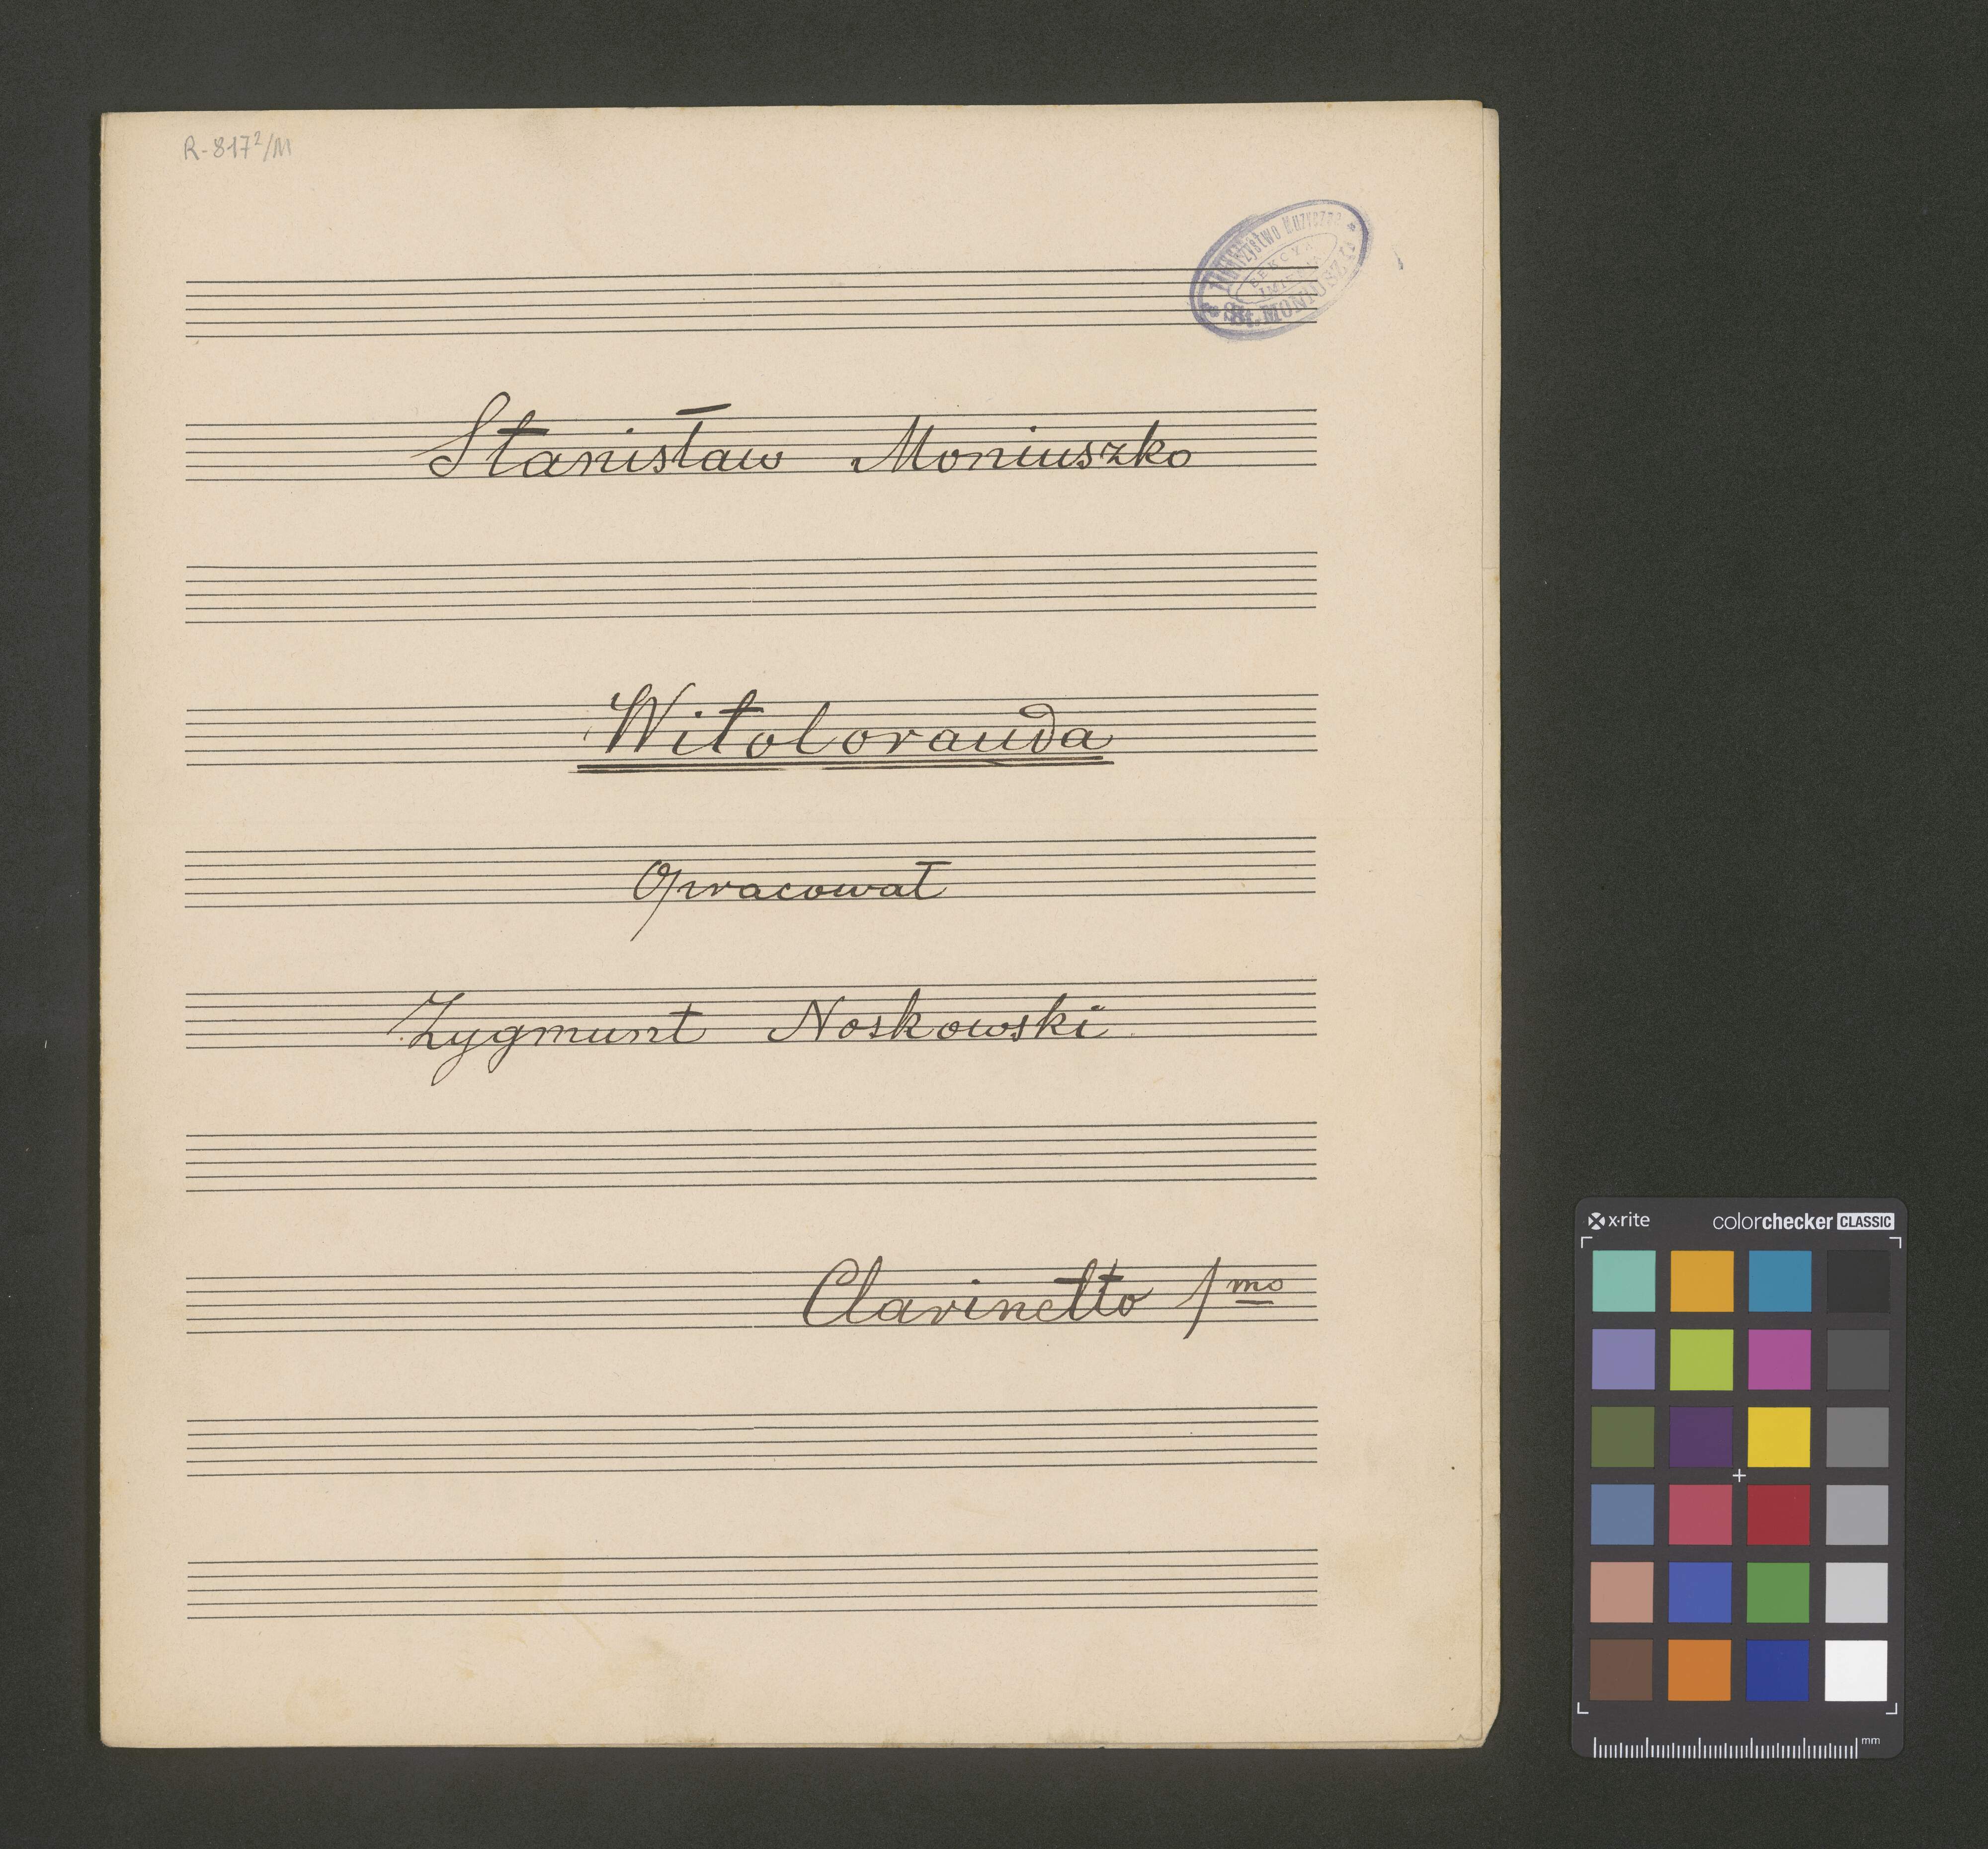 R-817²/M
Towarzystwo Muzyczne
SEKCYA
IMIENIA
St. MONIUSZKI
Stanisław Moniuszko
Witolorauda
Opracował
Zygmunt Noskowski
Clarinetto 1mo
x·rite colorchecker CLASSIC
mm